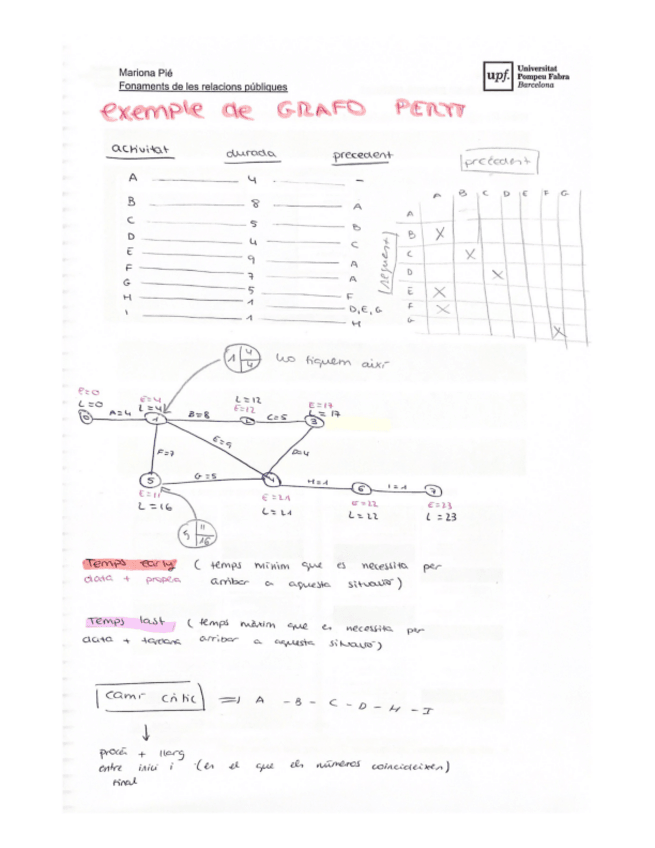 Mariona Pié
Fonaments de les relacions públiques
upf.
Universitat
Pompeu Fabra
Barcelona
exemple de GRAFO PERTT
activitat durada precedent
A 4 -
B 8 A
C 5 B
D 4 C
E 9 A
F 7 A
G 5 F
H 1 D, E, G
I 1 H
precedent
A B C D E F G
següent
A
B X
C X
D X
E X
F X
G X
1 4 4
ho fiquem així
E=0
L=0
0
A=4
E=4
L=4
1
B=8
L=12
E=12
2
C=5
E=17
L=17
3
F=7
E=9
D=4
5
G=5
4
H=1
6
I=1
7
E=11
L=16
E=21
L=21
E=22
L=22
E=23
L=23
5 11 16
Temps early (temps mínim que es necessita per
data + propera arribar a aquesta situació)
Temps last (temps màxim que es necessita per
data + tardana arribar a aquesta situació)
camí crític => A - B - C - D - H - I
procés + llarg
entre inici i (és el que els números coincideixen)
final